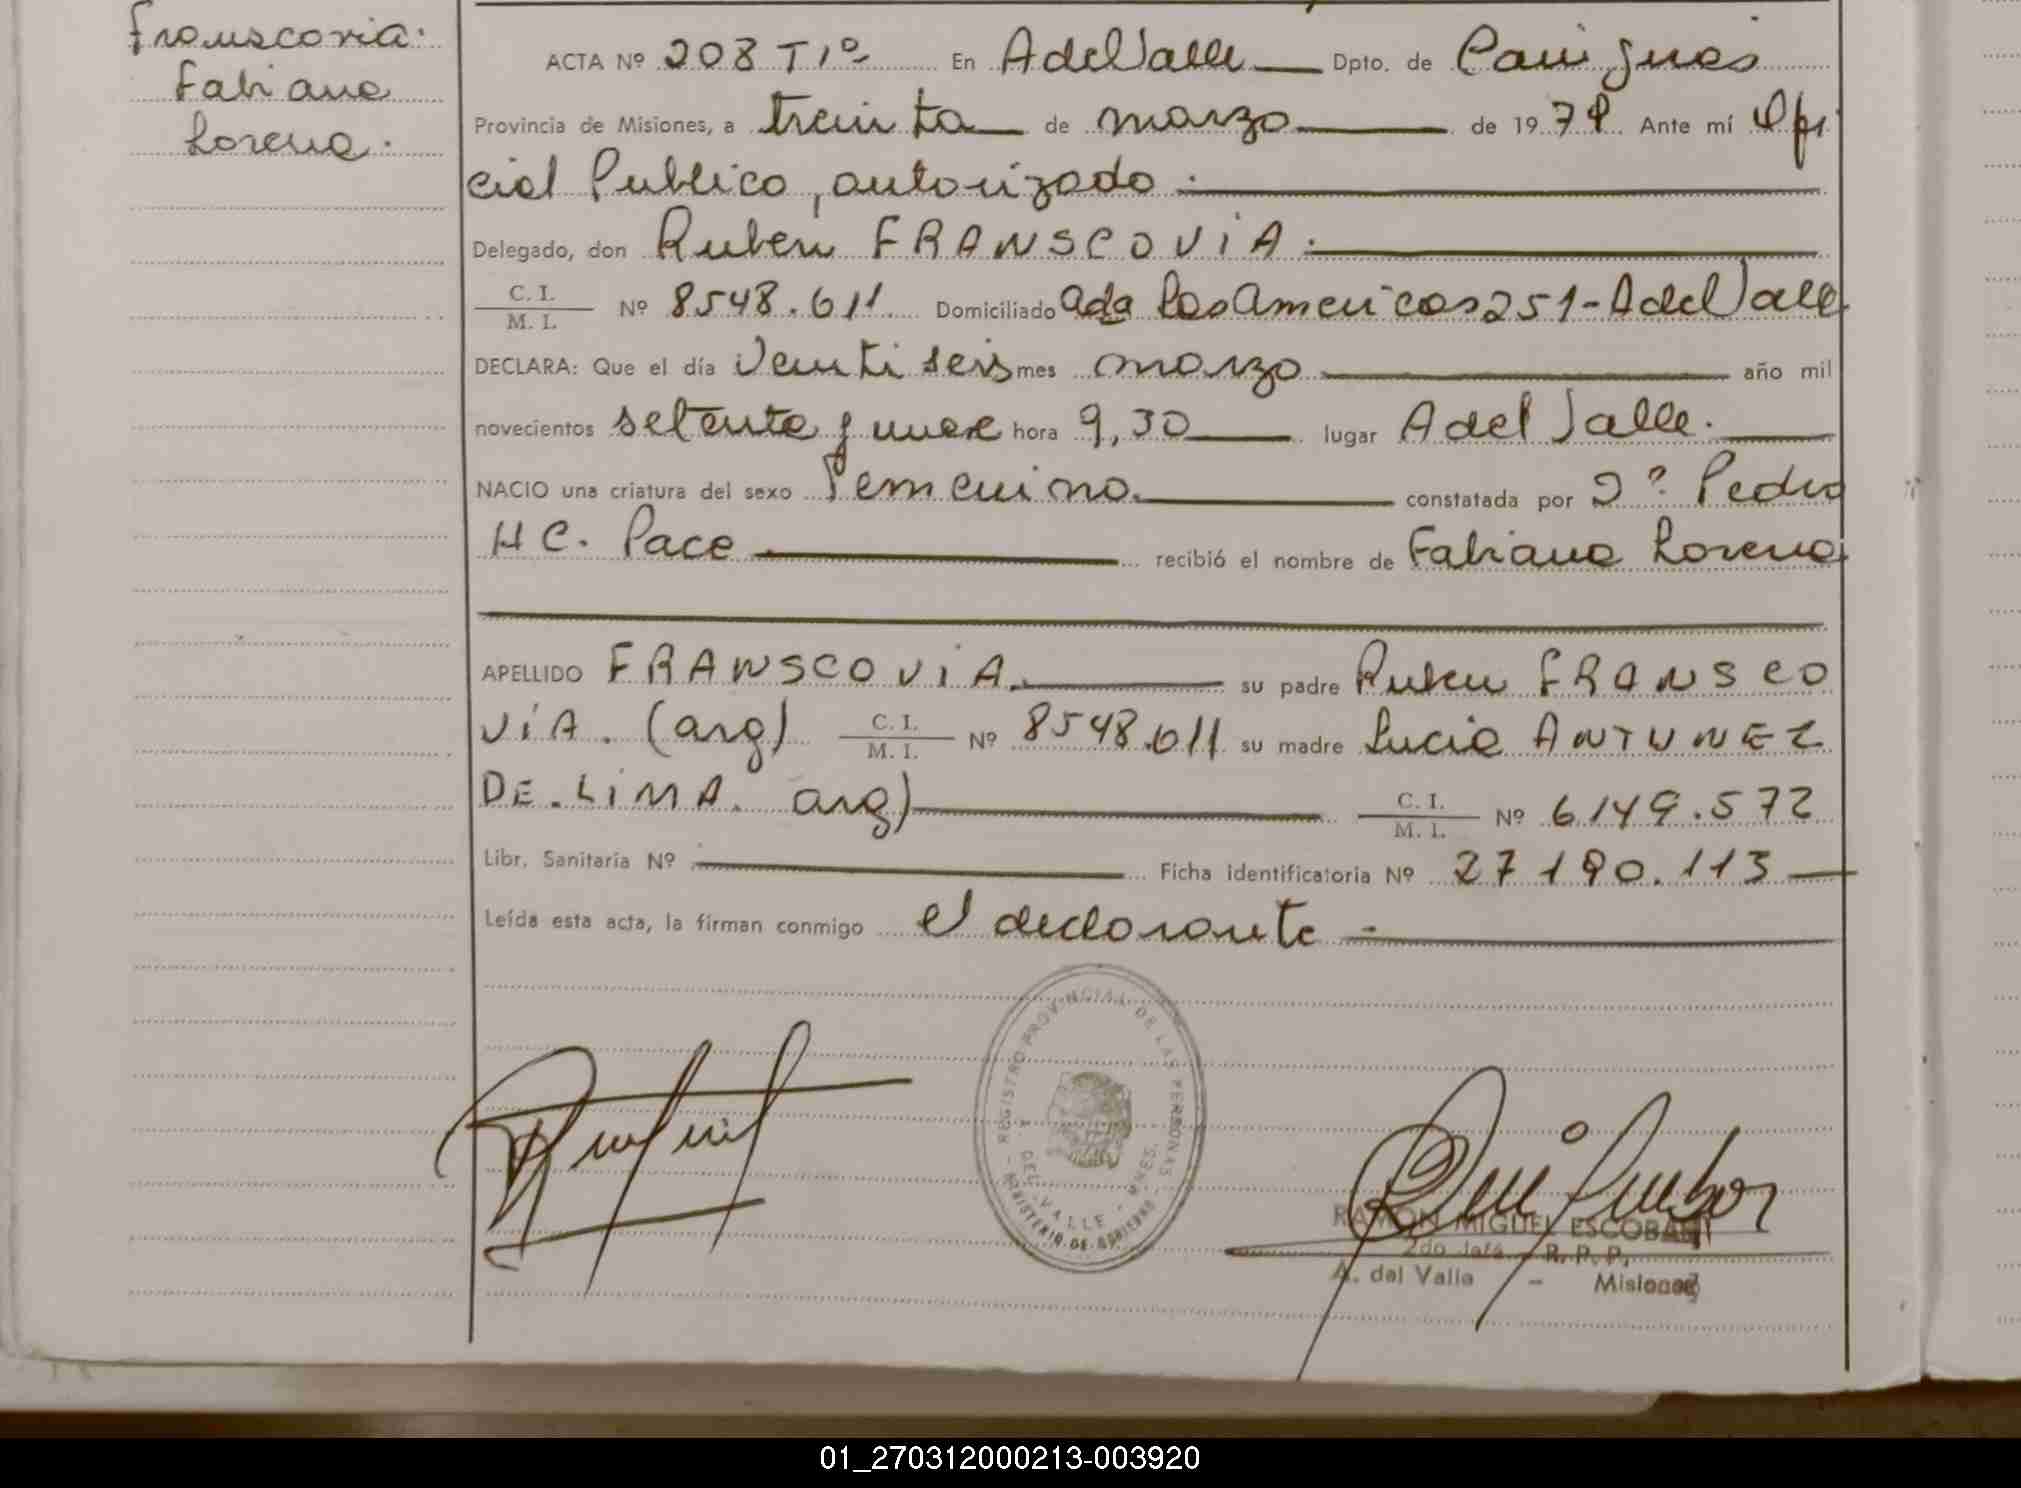 Franscovia.
Fabiana
Lorena.
ACTA Nº 208 T1º En A del Valle Dpto. de Cainguas
Provincia de Misiones, a treinta de marzo de 1979 Ante mí Ofi
cial Publico, autorizado.
Delegado, don Ruben FRANSCOVIA.
C. I.
M. I. Nº 8548.611 Domiciliado Las Americas 251-A del Valle
DECLARA: Que el día Veinti seis mes marzo año mil
novecientos setenta y nueve hora 9,30 lugar A del Valle.
NACIO una criatura del sexo Femenino. constatada por Pedro
HC. Pace recibió el nombre de Fabiana Lorena
APELLIDO FRANSCOVIA. su padre Ruben FRANSCO
VIA. (arg) C. I.
M. I. Nº 8548.611 su madre Lucia ANTUNEZ
DE.LIMA. arg) C. I.
M. I. Nº 6149.572
Libr. Sanitaria Nº Ficha identificatoria Nº 27190.113
Leída esta acta, la firman conmigo el declarante
REGISTRO PROVINCIAL DE LAS PERSONAS
A. DEL VALLE - MNES.
MINISTERIO DE GOBIERNO
RAMON MIGUEL ESCOBAR
2do Jefe R. P. P.
A. del Valle - Misiones
01_270312000213-003920